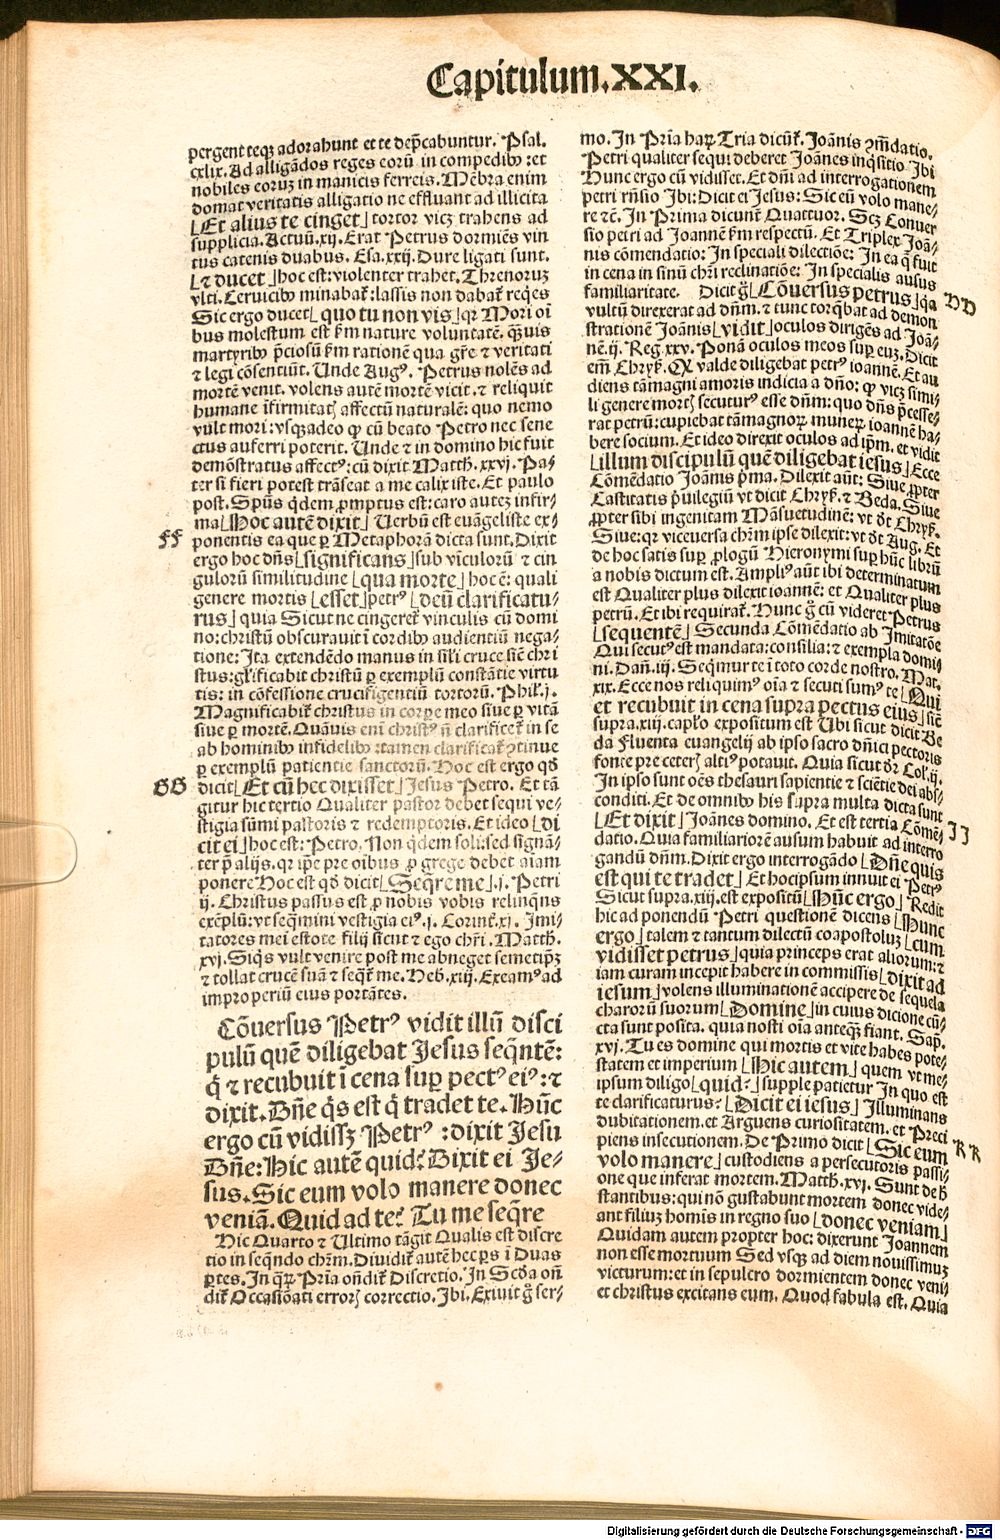 Capitulum.XXI.
pergent teqꝫ adorabunt et te dep̃cabuntur. Psal.
cxlix. Ad alligãdos reges eorũ in compedibꝰ: et
nobiles eoruꝫ in manicis ferreis. Mẽbra enim
domat veritatis alligatio ne effluant ad illicita
⌊Et alius te cinget⌋ tortor vicꝫ trahens ad
supplicia. Actuũ.xij. Erat Petrus dormiẽs vin
ctus catenis duabus. Esa.xxij. Dure ligati sunt.
⌊⁊ ducet⌋ hoc est: violenter trahet. Threnoruꝫ
vlti. Ceruicibꝰ minabat᷑: lassis non dabat᷑ req̃es
Sic ergo ducet⌊ quo tu non vis⌋ qꝛ Mori oĩ
bus molestum est ẜm nature voluntatẽ. q̃ꝫuis
martyribꝰ p̃ciosũ ẜm rationẽ qua gr̃e ⁊ veritati
⁊ legi cõsentiũt. Unde Augꝰ. Petrus nolẽs ad
mortẽ venit. volens autẽ mortẽ vicit. ⁊ reliquit
humane ĩfirmitatꝭ affectũ naturalẽ: quo nemo
vult mori: vsqꝫadeo ꝙ cũ beato Petro nec sene
ctus auferri poterit. Unde ⁊ in domino hic fuit
demõstratus affectꝰ: cũ dixit Matth.xxvj. Pa-
ter si fieri potest trãseat a me calix iste. Et paulo
post. Spũs q̇dem ꝓmptus est: caro auteꝫ infir-
ma⌊Hoc autẽ dixit⌋ Uerbũ est euãgeliste ex-
FF
ponentis ea que ꝑ Metaphorã dicta sunt. Dixit
ergo hoc dñs⌊significans⌋sub vĩculorũ ⁊ cin
gulorũ similitudine ⌊qua morte⌋ hoc ẽ: quali
genere mortis ⌊esset⌋petrꝰ ⌊deũ clarificatu-
rus⌋ quia Sicut ne cingeret᷑ vinculis cũ domi
no: christũ obscurauit ĩ cordibꝰ audientiũ nega-
tione: Ita extendẽdo manus in sil̃i cruce siẽ chr̃i
stus: gl̃ificabit christũ ꝑ exemplũ constãtie virtu
tis: in cõfessione crucifigentiũ tortorũ. Phil.j.
Magnificabit᷑ christus in corpore meo siue ꝑ vitã
siue ꝑ mortẽ. Quãuis eni christꝰ ñ clarificet᷑ in se
ab hominibꝰ infidelibꝰ: tamen clarificat᷑ ↄtinue
ꝑ exemplũ patientie sanctorũ. Hoc est ergo qđ
GG
dicit⌊Et cũ hec dixisset⌋ Jesus Petro. Et tã
gitur hic tertio Qualiter pastor debet sequi ve-
stigia sũmi pastoris ⁊ redemptoris. Et ideo ⌊di
cit ei⌋hoc est: Petro. Non q̇dem soli: sed signã-
ter p̃ alijs. qꝛ ip̃e pre oibus ꝓ grege debet aĩam
ponere Hoc est qđ dicit⌊Seq̃re me⌋.j. Petri
ij. Christus passus est ꝓ nobis vobis relinqns
exẽplũ: vt seq̃mini vestigia eiꝰ.j. Corint̃.xj. Jmi-
tatores mei estote filij sicut ⁊ ego chr̃i. Matth.
xvj. Siq̇s vult venire post me abneget semetip̃ꝫ
⁊ tollat crucẽ suã ⁊ seq̃t᷑ me. Heb.xiij. Exeamꝰ ad
improperiũ eius portãtes.
Cõuersus Petrꝰ vidit illũ disci
pulũ quẽ diligebat Jesus seq̃ntẽ:
q̇ ⁊ recubuit ĩ cena suꝑ pectꝰ eiꝰ: ⁊
dixit. Dñe q̇s est q̇ tradet te. Hũc
ergo cũ vidissꝫ Petrꝰ: dixit Jesu
Dñe: Hic autẽ quid? Dixit ei Je-
sus. Sic eum volo manere donec
veniã. Quid ad te? Tu me seq̃re
Hic Quarto ⁊ Ultimo tãgit Qualis est discre
tio in seq̃ndo chr̃m. Diuidit᷑ autẽ hec ꝑs ĩ Duas
ꝑtes. In qꝛꝝ Pr̃ia oñdit᷑ Discretio. In Scđa oñ
dit᷑ Occasiõati errorꝭ correctio. Ibi. Exiuit g̃ ser-
mo. In Pr̃ia haꝝ Tria dicũt᷑. Joãnis ↄm̃datio.
Petri qualiter sequi deberet Joãnes inq̇sitio Ibi
Hunc ergo cũ vidisset. Et dñi ad interrogationem
petri rñsio Ibi: Dicit ei Jesus: Sic eũ volo mane-
re ⁊c̃. In Prima dicunt᷑ Quattuor. Scꝫ Conuer
sio petri ad Joannẽ ẜm respectũ. Et Triplex Joã-
nis cõmendatio: In speciali dilectiõe: In ea q̃ fuit
in cena in sinũ chr̃i reclinatiõe: In specialis ausus
familiaritate. Dicit g̃ ⌊Cõuersus petrus⌋qa
HH
vultũ direxerat ad dñm. ⁊ tunc torq̃bat ad demon
strationẽ Joãnis⌊vidit⌋oculos dirigẽs ad Joã-
nẽ.ij. Reg.xxv. Ponã oculos meos suꝑ euꝫ. Dicit
em̃ Chryẜ. Qꝛ valde diligebat petrꝰ ioannẽ. Et au
diens tãmagni amoris indicia a dño: ꝙ vicꝫ simi-
li genere mortꝭ secuturꝰ esse dñm: quo dñs p̃cesse-
rat petrũ: cupiebat tãmagnoꝝ muneꝝ ioannẽ ha-
bere socium. Et ideo direxit oculos ad ip̃m. et vidit
⌊illum discipulũ quẽ diligebat iesus⌋ Ecce
Cõmẽdatio Joãnis p̃ma. Dilexit aũt: Siue ꝓpter
Castitatis p̃uilegiũ vt dicit Chryẜ. ⁊ Beda. Siue
ꝓpter sibi ingenitam Mãsuetudinẽ: vt đt Chryẜ.
Siue: qꝛ viceuersa chr̃m ipse dilexit: vt đt Aug. Et
de hoc satis suꝑ ꝓlogũ Hieronymi suꝑ hũc librũ
a nobis dictum est. Ampliꝰ aũt ibi determinatum
est Qualiter plus dilexit ioannẽ: et Qualiter plus
petrũ. Et ibi requirat᷑. Hunc g̃ cũ videret Petrus
⌊sequentẽ⌋ Secunda Cõmẽdatio ab Imitatõe
Qui secutꝰ est mandata: consilia: ⁊ exempla domi-
ni. Dañ.iij. Seq̃mur te ĩ toto corde nostro. Mat.
xix. Ecce nos reliquimꝰ oĩa ⁊ secuti sumꝰ te⌊Qui
et recubuit in cena supra pectus eius⌋siẽ
supra.xiij. capl̃o expositum est Ubi sicut dicit Be
da Fluenta euangelij ab ipso sacro dñici pectoris
fonte pre ceterꝭ altiꝰ potauit. Quia sicut đr Col.ij.
In ipso sunt oẽs thesauri sapientie ⁊ sciẽtie dei abs-
conditi. Et de omnibꝰ his supra multa dicta sunt
⌊Et dixit⌋ Joãnes domino. Et est tertia Cõmẽ-
JJ
datio. Quia familiariorẽ ausum habuit ad interro
gandũ dñm. Dixit ergo interrogãdo ⌊Dñe quis
est qui te tradet⌋ Et hocipsum innuit ei Petrꝰ
Sicut supra.xiij. est expositũ⌊Hũc ergo⌋ Redit
hic ad ponendũ Petri questionẽ dicens ⌊Hunc
ergo⌋ talem ⁊ tantum dilectũ coapostoluꝫ ⌊cum
vidisset petrus⌋quia princeps erat aliorum: ⁊
iam curam incepit habere in commissis⌊dixit ad
iesum⌋volens illuminationẽ accipere de sequela
charorũ suorum⌊Domine⌋in cuius dicione cũ-
cta sunt posita. quia nosti oĩa anteq̃ꝫ fiant. Sap̃.
xvj. Tu es domine qui mortis et vite habes pote-
statem et imperium ⌊Hic autem⌋ quem vt me-
ipsum diligo⌊quid?⌋supple patietur In quo est
te clarificaturus? ⌊Dicit ei iesus⌋ Illuminans
dubitationem. et Arguens curiositatem. et Preci
piens insecutionem. De Primo dicit ⌊Sic eum
KK
volo manere⌋custodiens a persecutoris passi-
one que inferat mortem. Matth.xvj. Sunt de h̃
stantibus: qui nõ gustabunt mortem donec vide-
ant filiuꝫ homĩs in regno suo ⌊donec veniam⌋
Quidam autem propter hoc: dixerunt Joannem
non esse mortuum Sed vsqꝫ ad diem nouissimuꝫ
victurum: et in sepulcro dormientem donec veni-
et christus excitans eum. Quod fabula est. Quia
Digitalisierung gefördert durch die Deutsche Forschungsgemeinschaft - DFG